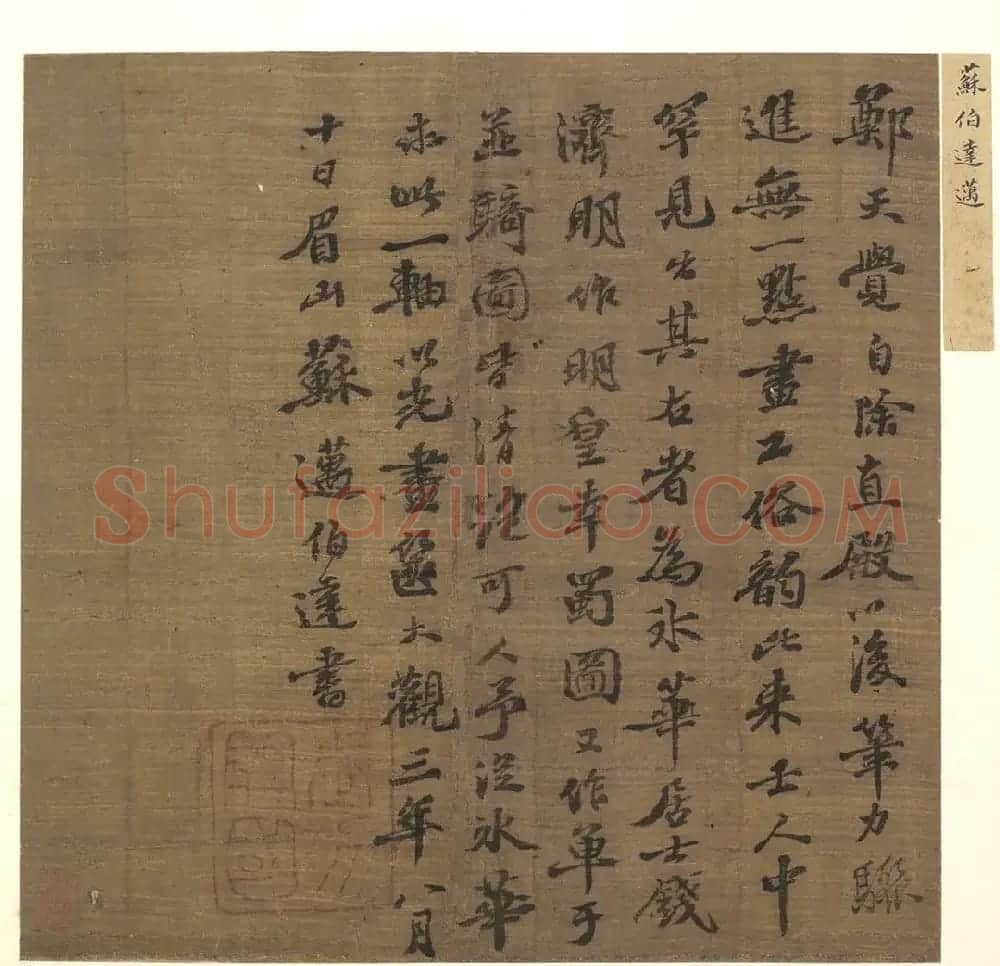 蘇伯達邁
鄭天覺自除直殿以後筆力驟
進無一點畫工俗韻比来士人中
罕見出其右者為氷華居士錢
濟明作明皇幸蜀圖又作單于
並騎圖皆清絶可人予従氷華
求此一軸以光畫篋大觀三年八月
十日眉山蘇邁伯達書
Shufaziliao.COM